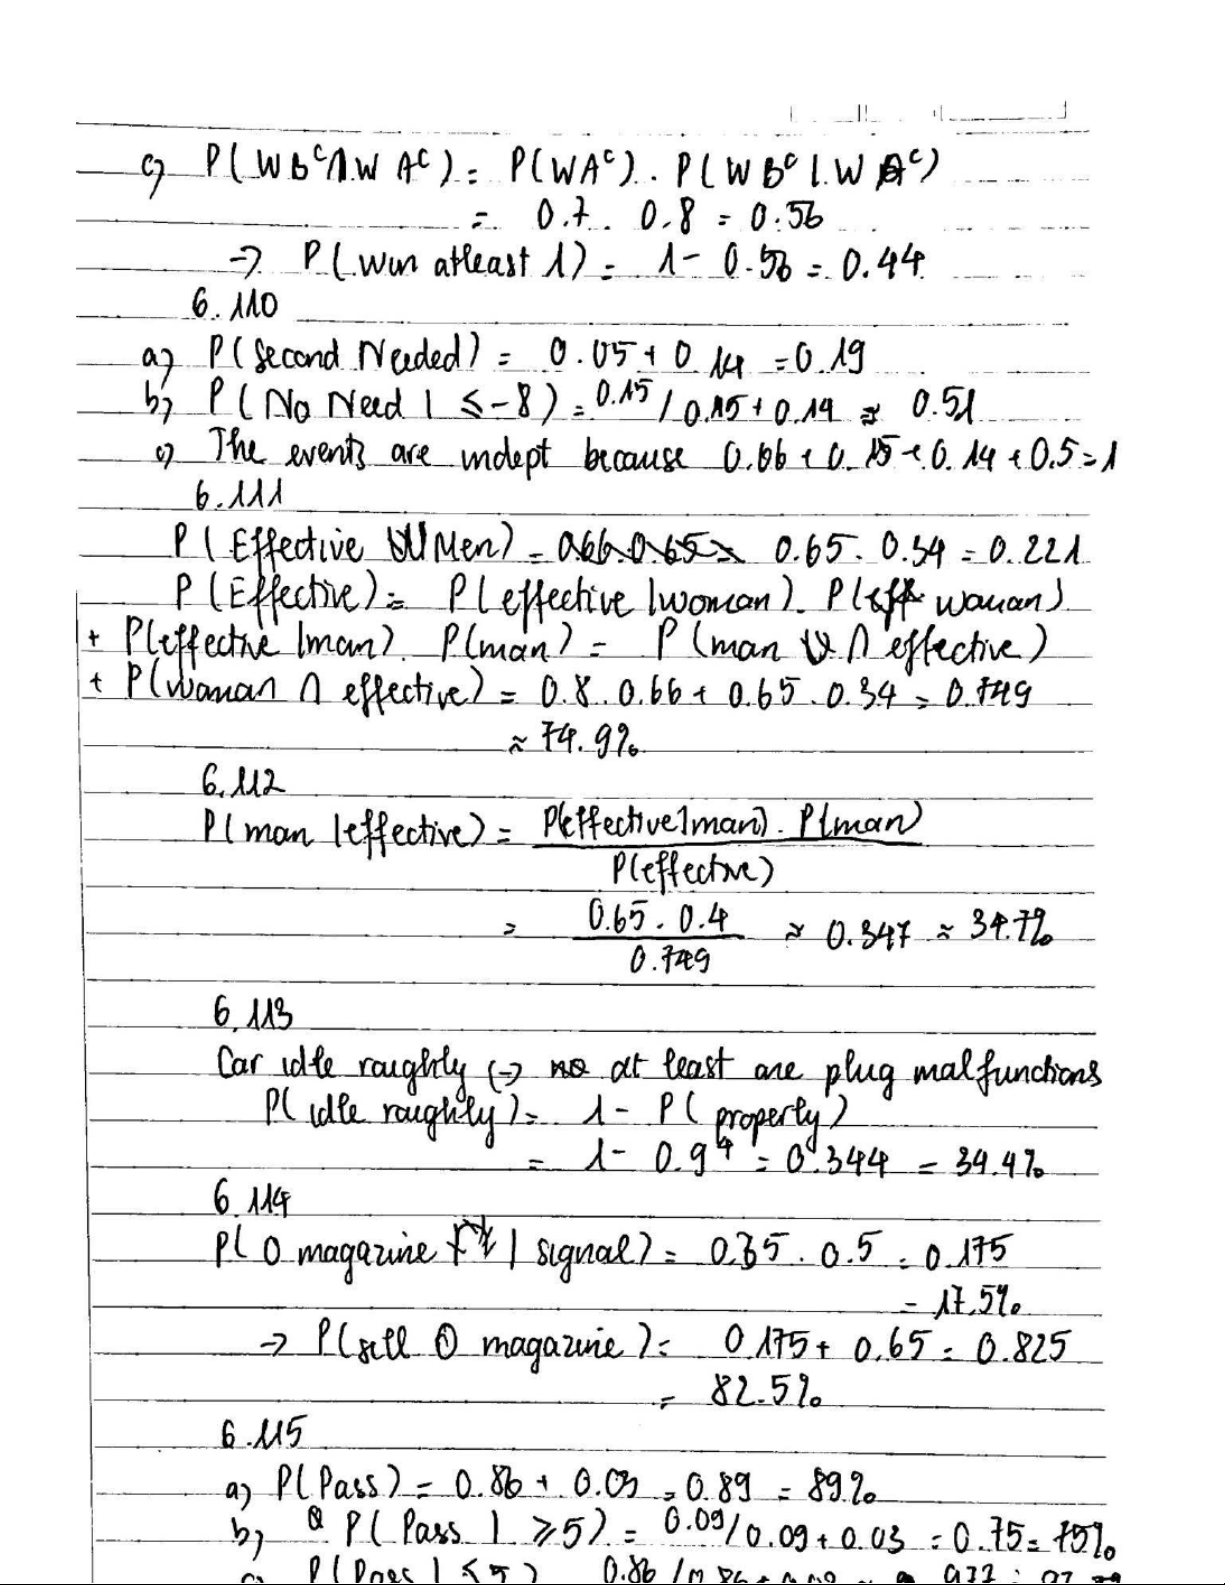 c) P(WB^c ∩ WA^c) = P(WA^c) . P(WB^c | WA^c)
= 0.7 . 0.8 = 0.56
→ P(win atleast 1) = 1 - 0.56 = 0.44
6.110
a) P(Second Needed) = 0.05 + 0.14 = 0.19
b) P(No Need | ≤-8) = 0.15 / 0.15 + 0.14 ≈ 0.51
c) The events are indept because 0.06 + 0.15 + 0.14 + 0.5 = 1
6.111
P(Effective Men) = 0.65 . 0.34 = 0.221
P(Effective) = P(effective | woman) . P(woman)
+ P(effective | man) . P(man) = P(man ∩ effective)
+ P(woman ∩ effective) = 0.8 . 0.66 + 0.65 . 0.34 = 0.749
≈ 74.9%
6.112
P(man | effective) = P(effective | man) . P(man)
P(effective)
= 0.65 . 0.4 ≈ 0.347 ≈ 34.7%
0.749
6.113
Car idle roughly (→ at least one plug malfunctions
P(idle roughly) = 1 - P(property)
= 1 - 0.9^4 = 0.344 = 34.4%
6.114
P(0 magazine | signal) = 0.35 . 0.5 = 0.175
= 17.5%
→ P(sell 0 magazine) = 0.175 + 0.65 = 0.825
= 82.5%
6.115
a) P(Pass) = 0.86 + 0.03 = 0.89 = 89%
b) P(Pass | ≥5) = 0.09 / 0.09 + 0.03 = 0.75 = 75%
P(Pass | ≤5) 0.86 /